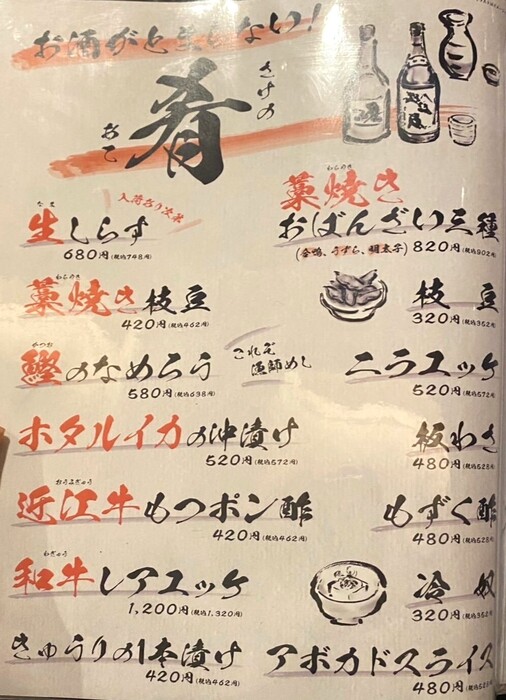 お酒がとまらない!
さけの
肴
あて
入荷あり次第
なま
生しらす
680円(税込748円)
わらやき
藁焼き
おばんざい三種
(合鴨、うずら、明太子) 820円(税込902円)
わらやき
藁焼き枝豆
420円(税込462円)
枝豆
320円(税込352円)
かつお
鰹のなめろう
580円(税込638円)
これぞ
漁師めし
ニラユッケ
520円(税込572円)
ホタルイカの沖漬け
520円(税込572円)
板わさ
480円(税込528円)
おうみぎゅう
近江牛もつポン酢
420円(税込462円)
もずく酢
480円(税込528円)
わぎゅう
和牛レアユッケ
1,200円(税込1,320円)
冷奴
320円(税込352円)
きゅうりの1本漬け
420円(税込462円)
アボカドスライス
480円(税込528円)